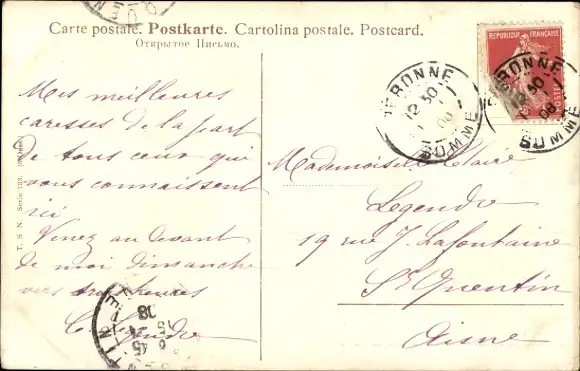 Carte postale. Postkarte. Cartolina postale. Postcard.
Открытое Письмо.
REPUBLIQUE FRANÇAISE
POSTES
PERONNE
12 30
08
SOMME
PERONNE
12 30
08
SOMME
Mes meilleures
caresses de la part
de tous ceux qui
vous connaissent
ici
Venez au devant
de moi dimanche
vers heures
C. Legendre
Mademoiselle Claire
Legendre
19 rue J. Lafontaine
St Quentin
Aisne
T. S. N. Serie 733.